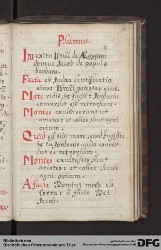 Psalmus
In exitu Israel de Aegypto
domus Jacob de populo
barbaro.
Facta est Judea sanctificatio
eius Israel potestas eius.
Mare vidit et fugit Jordanis
conversus est retrorsum.
Montes exultaverunt ut
arietes et colles sicut
agni ovium.
Quid est tibi mare quod fugisti
et tu Jordanis quia
conversus es retrorsum
Montes exultastis sicut
arietes et colles sicut
agni ovium.
A facie Domini mota est
terra a facie Dei
Jacob.
Bibliothek des
Bischöflichen Priesterseminars Trier
gefördert von der
DFG
Deutsche Forschungsgemeinschaft